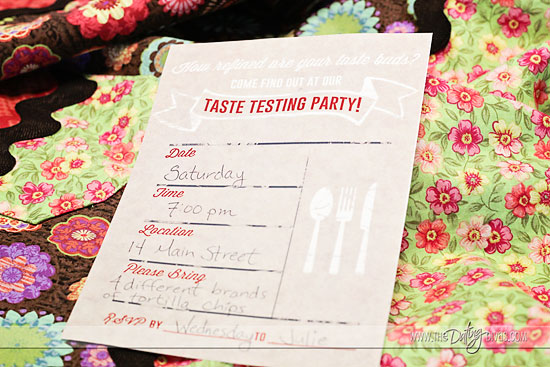 How refined are your taste buds?
COME FIND OUT AT OUR
TASTE TESTING PARTY!
Date
Saturday
Time
7:00 pm
Location
14 Main Street
Please Bring
4 different brands
of tortilla chips
RSVP BY Wednesday TO Julie
WWW.THEDatingDIVAS.COM